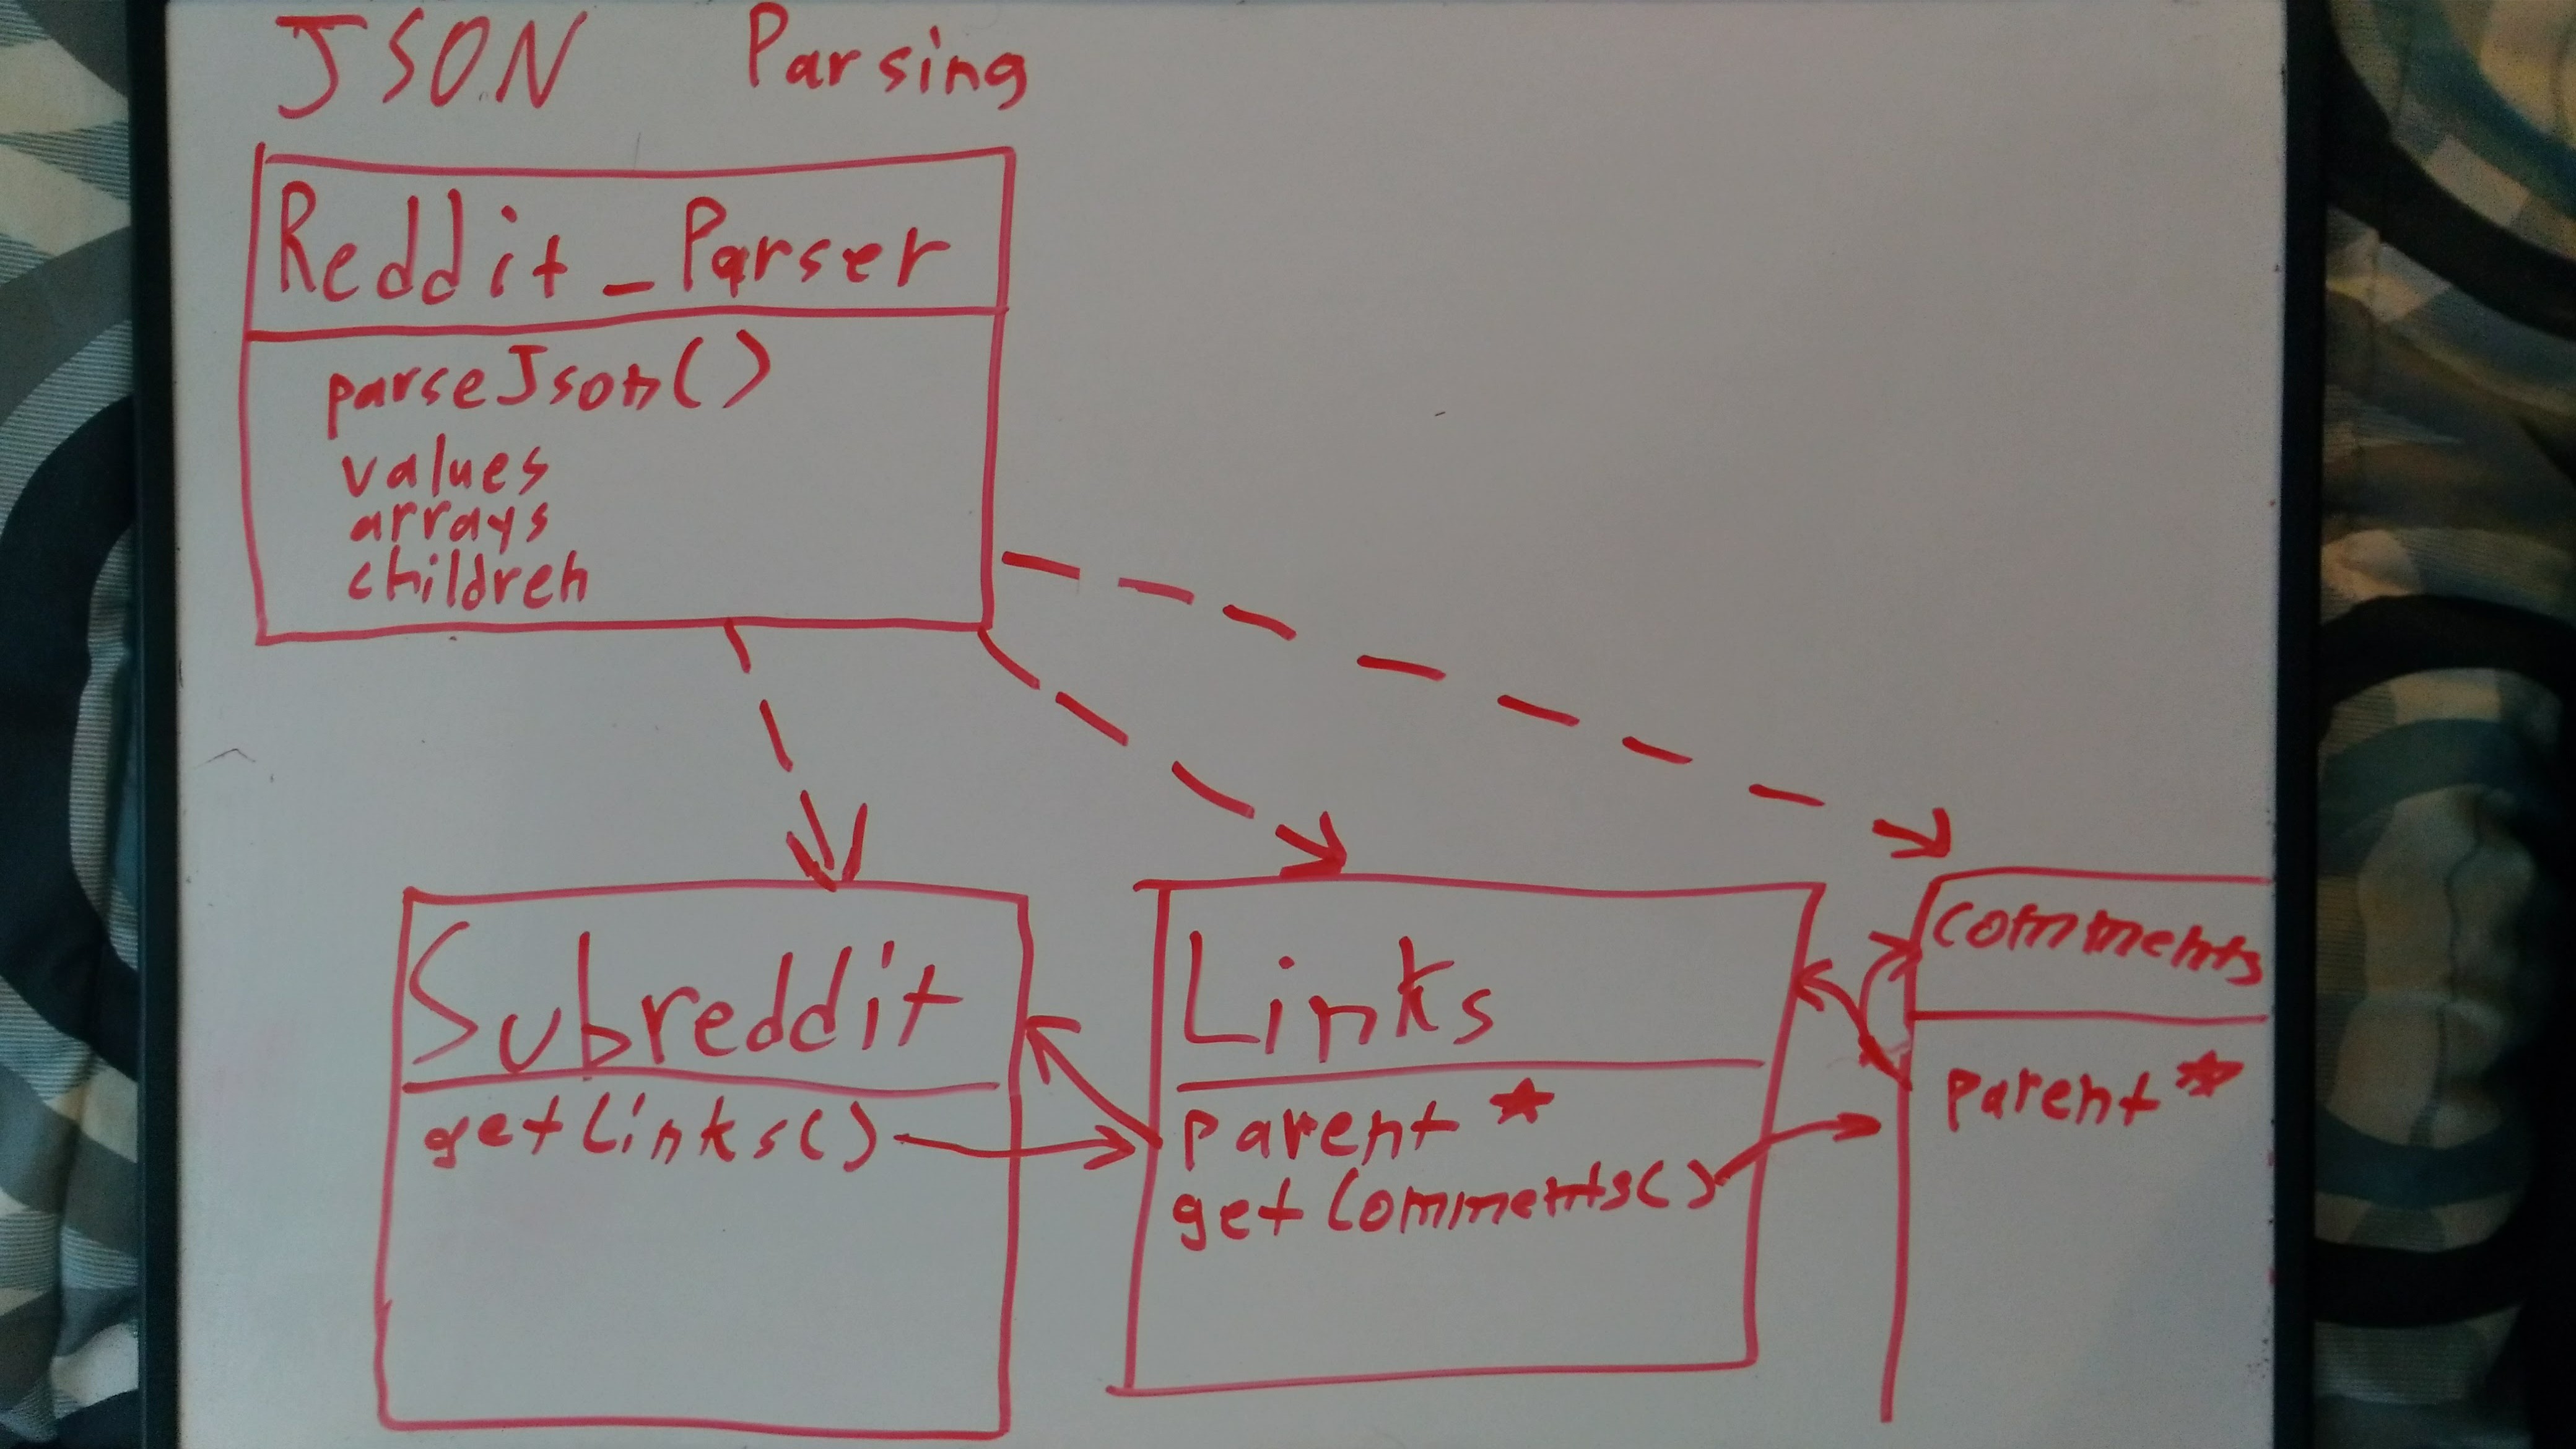 JSON Parsing
Reddit_Parser
parseJson()
values
arrays
children
Subreddit
getLinks()
Links
parent *
getComments()
comments
parent *